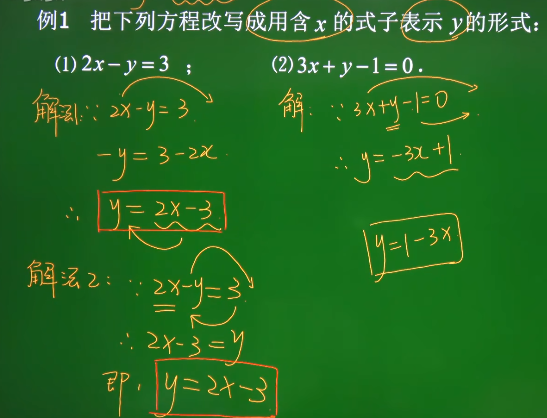 例1 把下列方程改写成用含x的式子表示y的形式:
(1) 2x-y=3 ; (2) 3x+y-1=0.
解法1: ∵ 2x-y=3
-y=3-2x.
∴ y=2x-3
解法2: ∵ 2x-y=3.
∴ 2x-3=y
即, y=2x-3
解: ∵ 3x+y-1=0
∴ y=-3x+1
y=1-3x